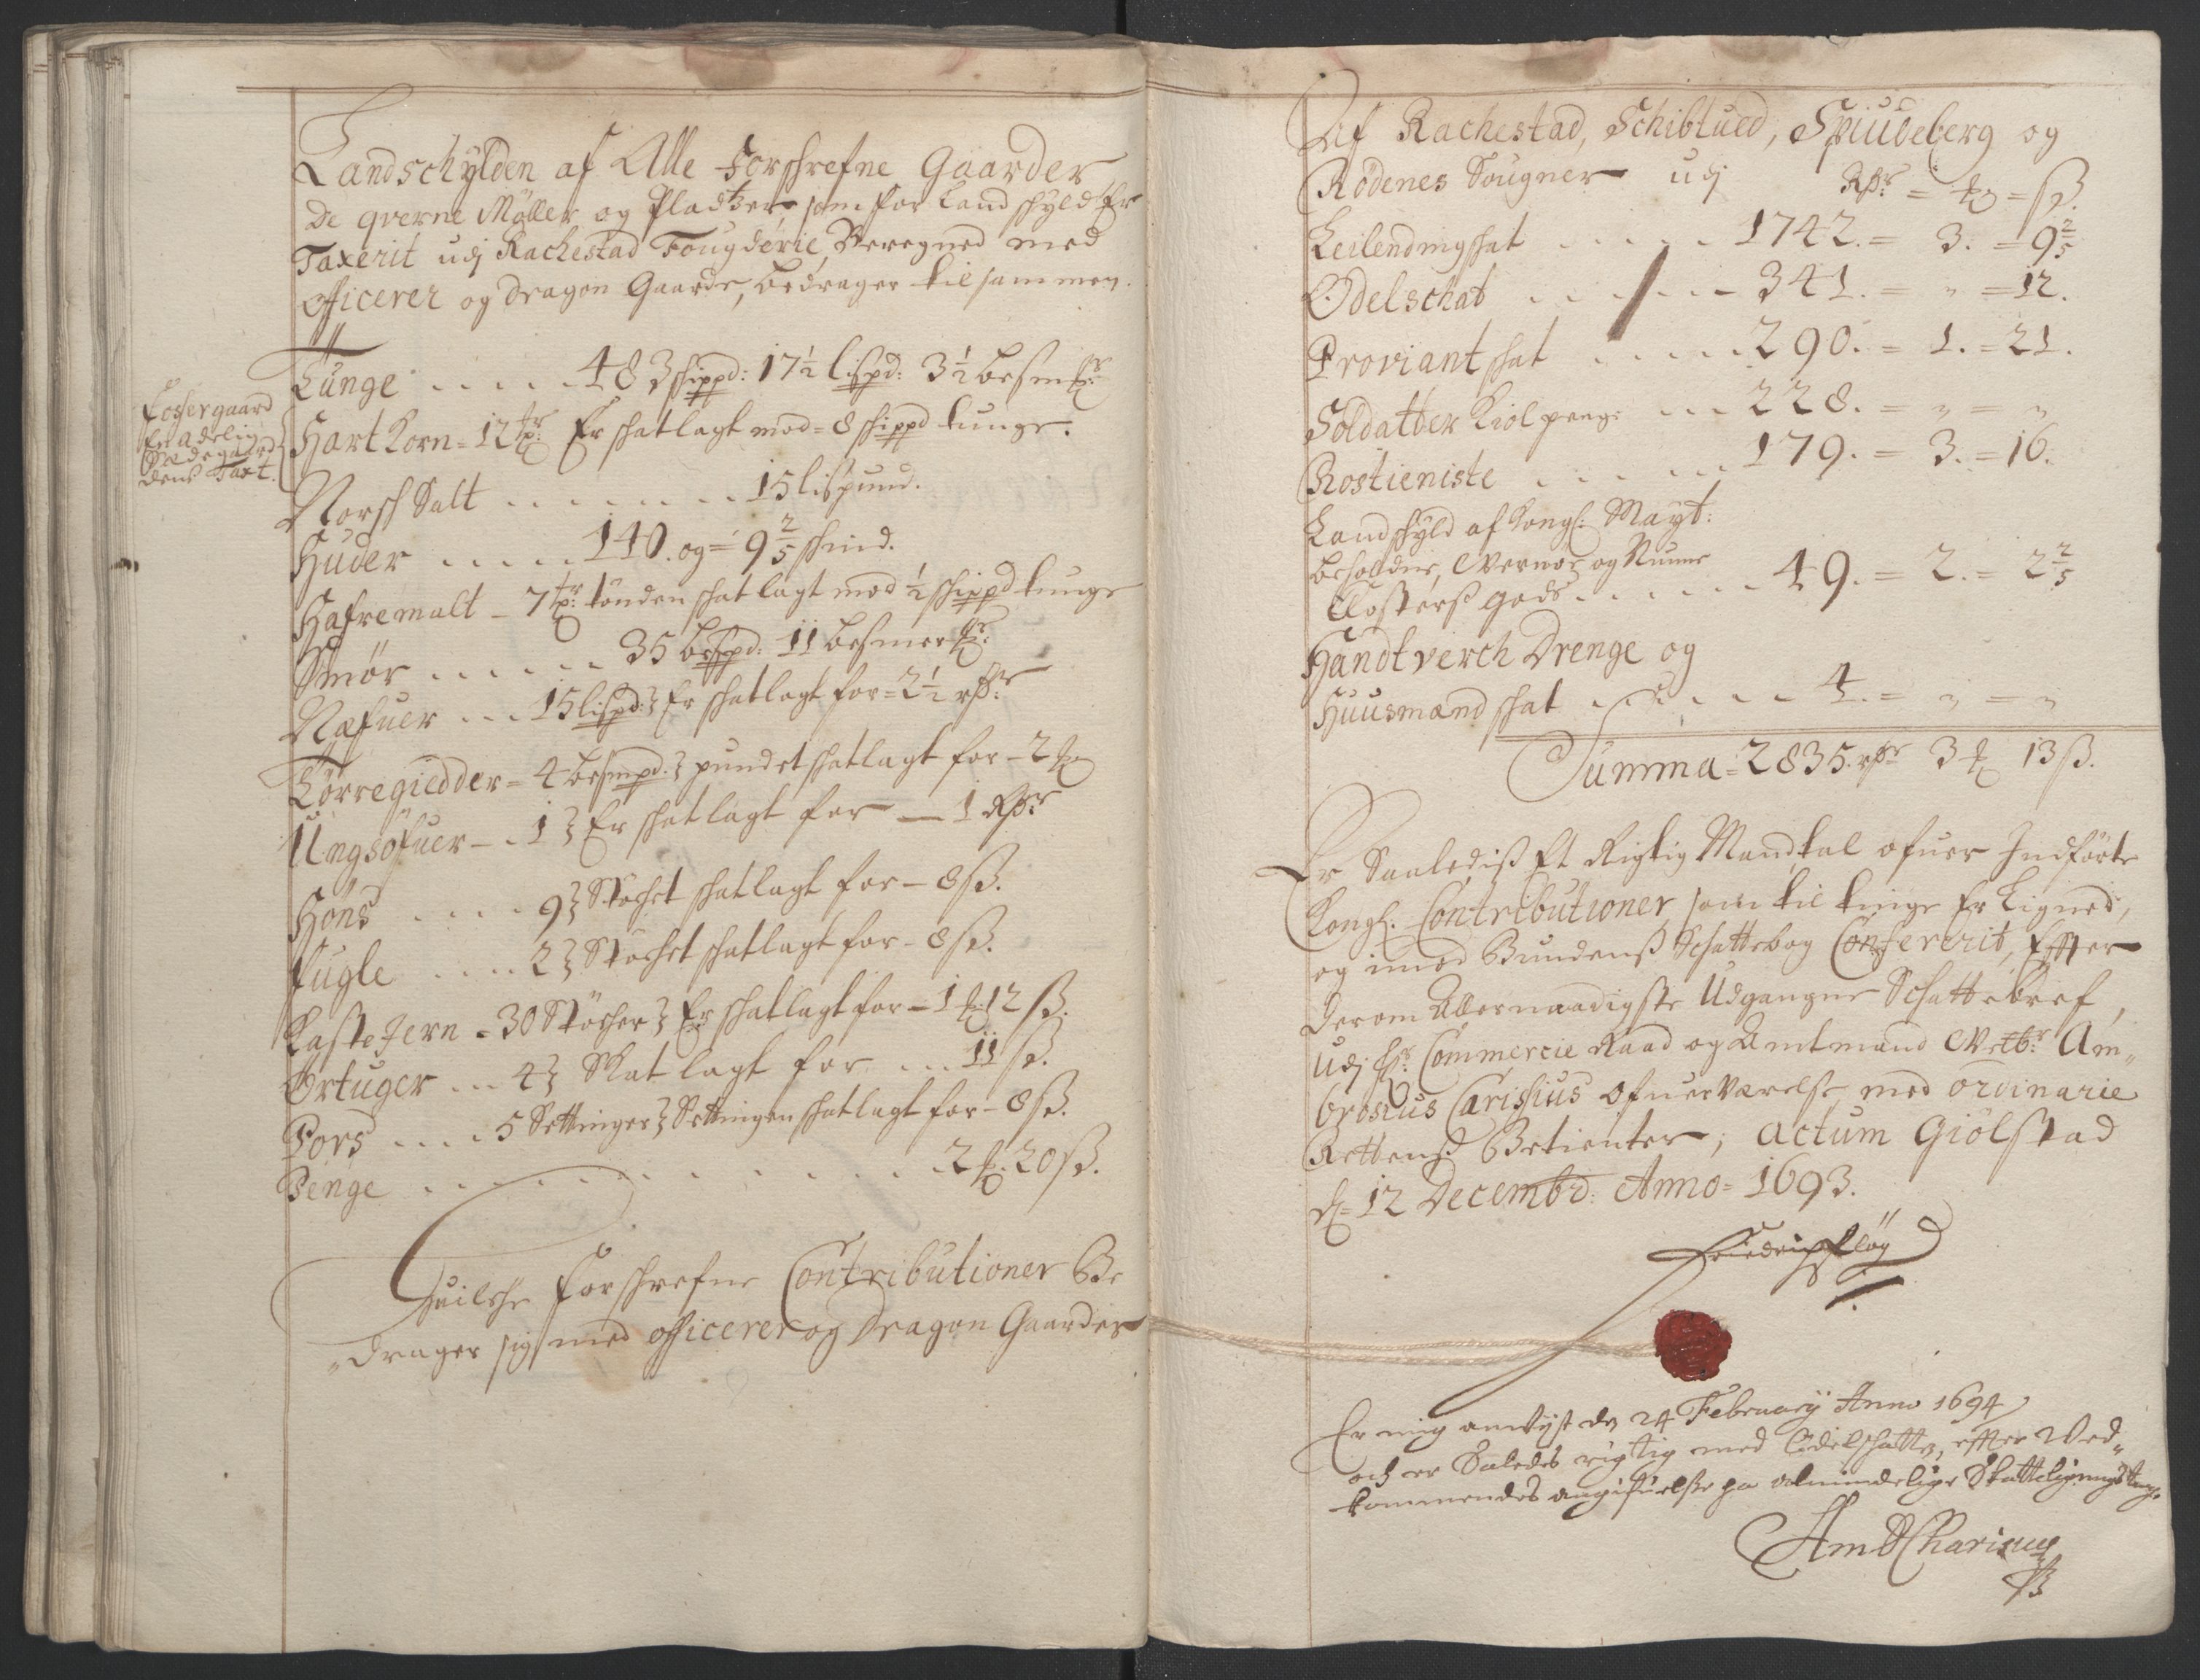 Landschylden af Alle Forschrefne Gaarder
de qverne Møller og Pladtzer, som for Landschyld Er
Taxerit udj Rachestad Fougderie, Beregned med
officerer og Dragon Gaarde, bedrager til sammen.
Tunge . . . . . 483 schippd: 17½ lispd: 3½ besm
Fossergaard
En adelig
Sædegaard
dens Taxt.
Hart Korn = 12 Er schatlagt mod = 8 schippd tunge.
Norsch Salt . . . . . . . . 15 lispund.
Huder . . . . . 140. og = 9 2/5 schind.
Hafremalt - 7 tønden schatlagt mod ½ schippd tunge
Smør . . . . . . 35 bespd: 11 besmer
Næfuer . . . 15 lispd: Er schatlagt for = 2½ rdr
Tørregiedder = 4 besmpd: pundet schatlagt for - 2
Ungsøfuer - . 1 Er schatlagt for — 1 Rdr
Høns . . . . 9 Støchet schatlagt for - 8 ß.
fugle . . . . . 2 Støchet schatlagt for - 8 ß.
Kaste Jern = 30 Støcher Er schatlagt for - 1 12 ß.
Ortuger . . . 4 Skatlagt for . . . 11 ß.
Pors . . . . 5 Settinger Settingen schatlagt for - 8 ß.
Penge . . . . . . . . . . . 2 20 ß.
Huilche forschrefne Contributioner Be
drager sig med officerer og Dragon Gaarder
Af Rachestad, Schibtued, Spiudeberg og
Rødenes Sougner udj Rdr = = ß.
Leilendingschat . . . . . 1742. = 3. = 9 2/5
Odelschat . . . . . . 341. = " = 12.
Proviantschat . . . . . 290. = 1. = 21.
Soldatter Kiolpeng: . . . 228. = " = "
Rostieniste . . . . . . 179. = 3. = 16.
Landschyld af Kongl: Mayt:
beholdne, Wernøe og Nunne
Closterß gods . . . . . . 49. = 2. = 2 2/5
Handtverch Drenge og
Huusmænd schat . . . . . . 4. = " = "
Summa = 2835. rdr 3 13 ß.
Er Saaledis Et Rigtig Mandtal ofuer Indførte
Kongl. Contributioner, som til tinge Er Lignet,
og imod Bundenß Schattebog Confererit, Effter
derom Allernaadigste Udgangne Schattebref,
Udj Hr: Commercie Raad og Amtmand Am„
brosius Carisius Ofuerværelse, med ordinarie
Rettens Betienter; actum Giølstad
d= 12 Decembr: Anno = 1693.
Friedrich Fløg
Er mig anvist den 24 February Anno 1694
och er Saledes rigtig med Odelschatten, effter Ved„
kommendes angifuelse pa almindelige Skatteligningsting.
Amb Charisius